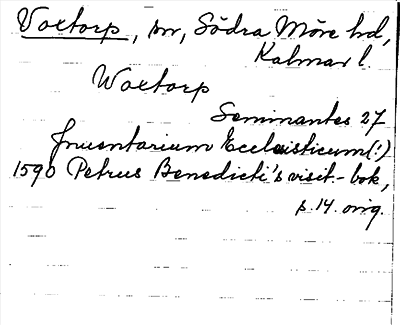 Voxtorp, sn, Södra Möre hd,
Kalmar l.
Woxtorp
Seminantes 27
Inuentarium Eccleisticum (!)
1590 Petrus Benedicti's visit.-bok,
s. 14. orig.